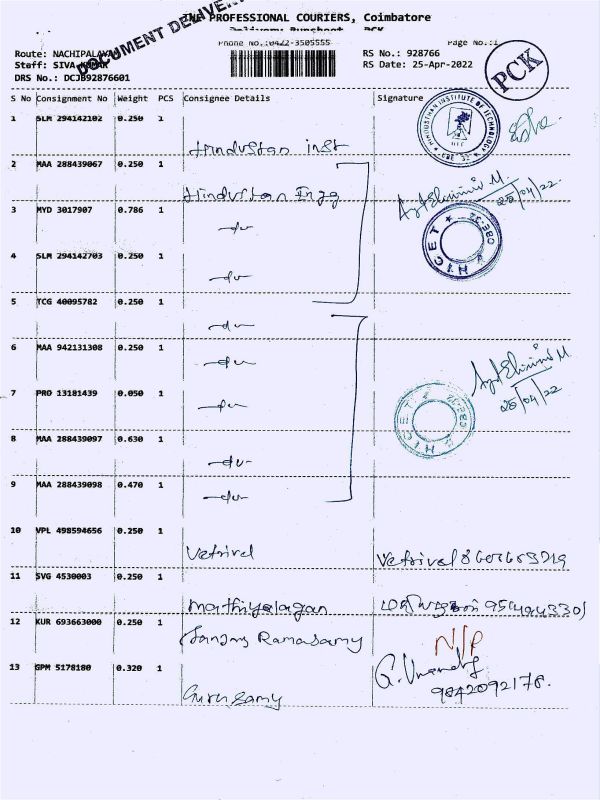 THE PROFESSIONAL COURIERS, Coimbatore
Delivery Runsheet - PCK
DOCUMENT DELIVERY
Phone No.:0422-3505555
Page No.:1
Route: NACHIPALAYAM
RS No.: 928766
Staff: SIVA KUMAR
RS Date: 25-Apr-2022
DRS No.: DCJB92876601
PCK
S No Consignment No Weight PCS Consignee Details Signature
1 SLM 294142102 0.250 1
Hindustan inst
HINDUSTHAN INSTITUTE OF TECHNOLOGY
HIT
CBE-32
2 MAA 288439067 0.250 1
Hindustan Engg
25/04/22
3 MYD 3017907 0.786 1
-do-
HICET
CBE-32
4 SLM 294142703 0.250 1
-do-
5 TCG 40095782 0.250 1
-do-
6 MAA 942131308 0.250 1
-do-
7 PRO 13181439 0.050 1
-do-
25/04/22
HICET
CBE-32
8 MAA 288439097 0.630 1
-do-
9 MAA 288439098 0.470 1
-do-
10 VPL 498594656 0.250 1
Vetrivel Vetrivel
11 SVG 4530003 0.250 1
Mathiyalagan
12 KUR 693663000 0.250 1
Ramasamy
N/P
13 GPM 5178180 0.320 1
Gurusamy
9842092178.